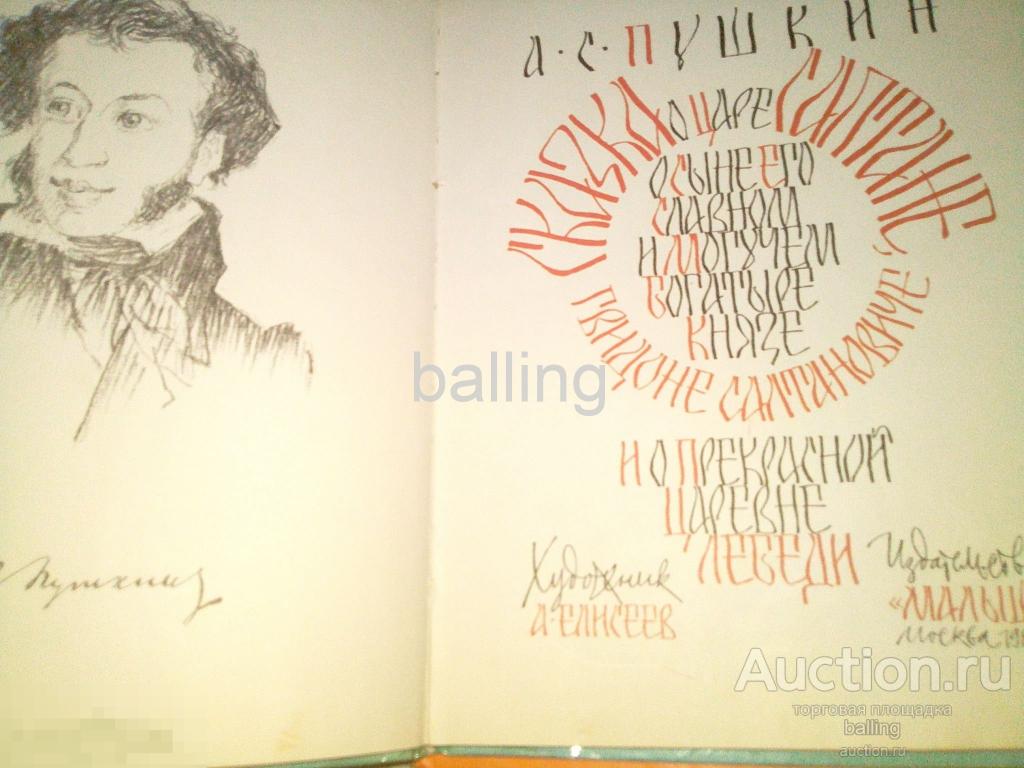 А. С. ПУШКИН
СКАЗКА О ЦАРЕ САЛТАНЕ,
О СЫНЕ ЕГО
СЛАВНОМ
И МОГУЧЕМ
БОГАТЫРЕ
КНЯЗЕ
ГВИДОНЕ САЛТАНОВИЧЕ
И О ПРЕКРАСНОЙ
ЦАРЕВНЕ
ЛЕБЕДИ
Художник
А. ЕЛИСЕЕВ
Издательств
«МАЛЫШ
Москва
Пушкин
balling
Auction.ru
торговая площадка
balling
auction.ru